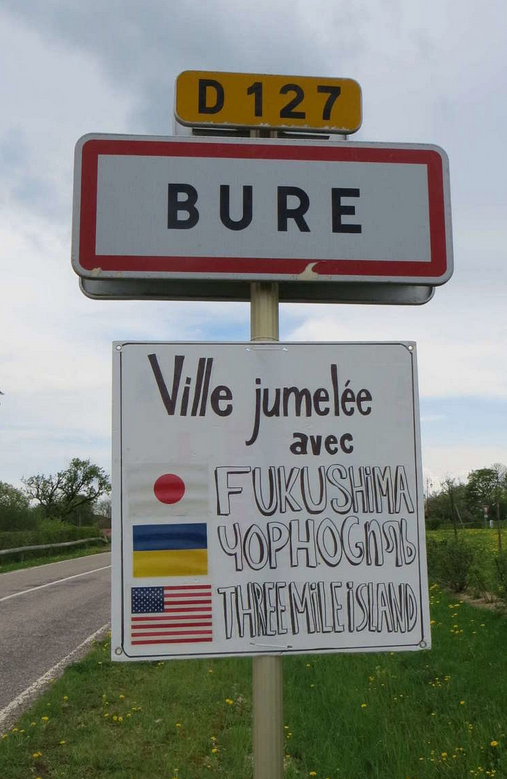 D 127
BURE
Ville jumelée
avec
FUKUSHiMA
ЧОРНОGИЛЬ
THREE MiLE iSLAND